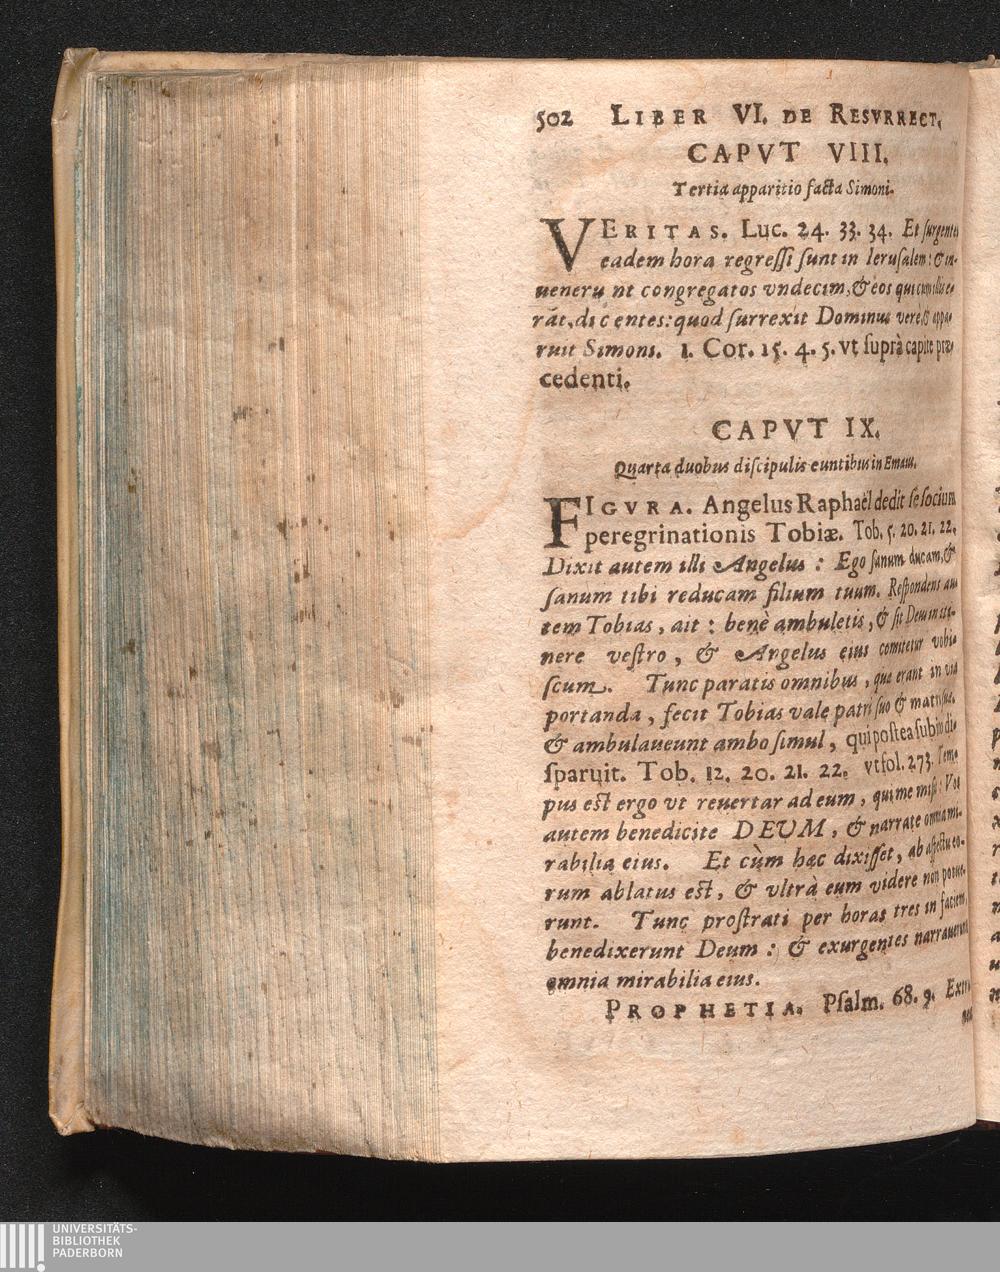 502 LIBER VI. DE RESVRRECT.
CAPVT VIII.
Tertia apparitio facta Simoni.
VERITAS. Luc. 24. 33. 34. Et surgentes
eadem hora regressi sunt in Ierusalem: & in-
ueneru nt congregatos vndecim, & eos qui cum illis e-
rāt, dic entes: quod surrexit Dominus verè, & appa-
ruit Simoni. 1. Cor. 15. 4. 5. vt suprà capite præ-
cedenti.
CAPVT IX.
Quarta duobus discipulis euntibus in Emaus.
FIGVRA. Angelus Raphaël dedit se socium
peregrinationis Tobiæ. Tob. 5. 20. 21. 22.
Dixit autem illi Angelus: Ego sanum ducam, &
sanum tibi reducam filium tuum. Respondens au-
tem Tobias, ait: benè ambuletis, & sit Deus in iti-
nere vestro, & Angelus eius comitetur vobi-
scum. Tunc paratis omnibus, quæ erant in via
portanda, fecit Tobias vale patri suo & matri suæ,
& ambulauerunt ambo simul, qui postea subitò di-
sparuit. Tob. 12. 20. 21. 22. vt fol. 273. Tem-
pus est ergo vt reuertar ad eum, qui me misit: Vos
autem benedicite DEUM, & narrate omnia mi-
rabilia eius. Et cùm hæc dixisset, ab aspectu eo-
rum ablatus est, & vltrà eum videre non potue-
runt. Tunc prostrati per horas tres in faciem,
benedixerunt Deum: & exurgentes narrauerunt
omnia mirabilia eius.
PROPHETIA. Psalm. 68. 9.
UNIVERSITÄTS-
BIBLIOTHEK
PADERBORN